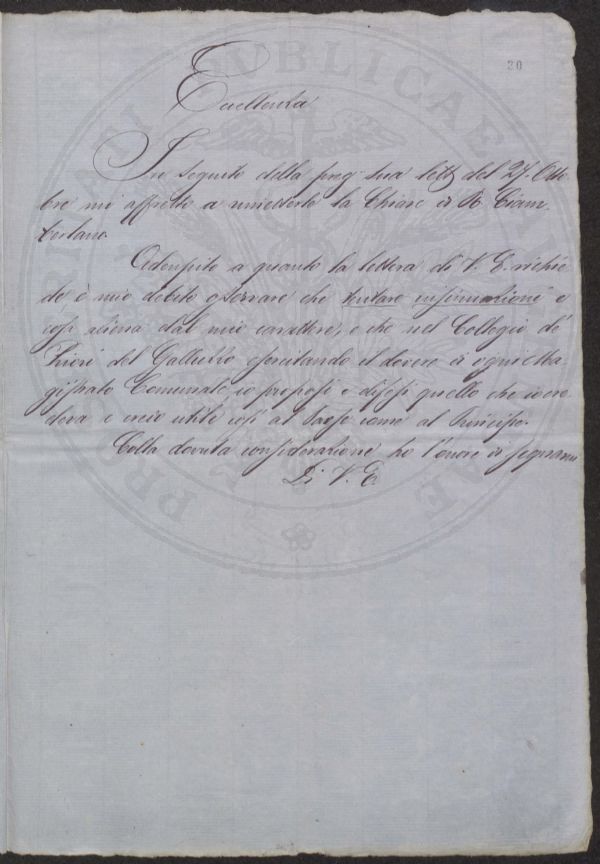 20
Eccellenza
In seguito della preg: sua lettª del 27. Otto-
bre mi affretto a rimetterle la Chiave di R. Ciam-
berlano.
Adempito a quanto la lettera di V. E. richie-
de, è mio debito osservare che tentare insinuazioni è
cosa aliena dal mio carattere, e che nel Collegio de'
Priori del Galluzzo esercitando il dovere di ogni Ma-
gistrato Comunale, io proposi e difesi quello che io cre-
deva e credo utile così al Paese come al Principe.
Colla dovuta considerazione ho l'onore di segnarmi
Di V. E.